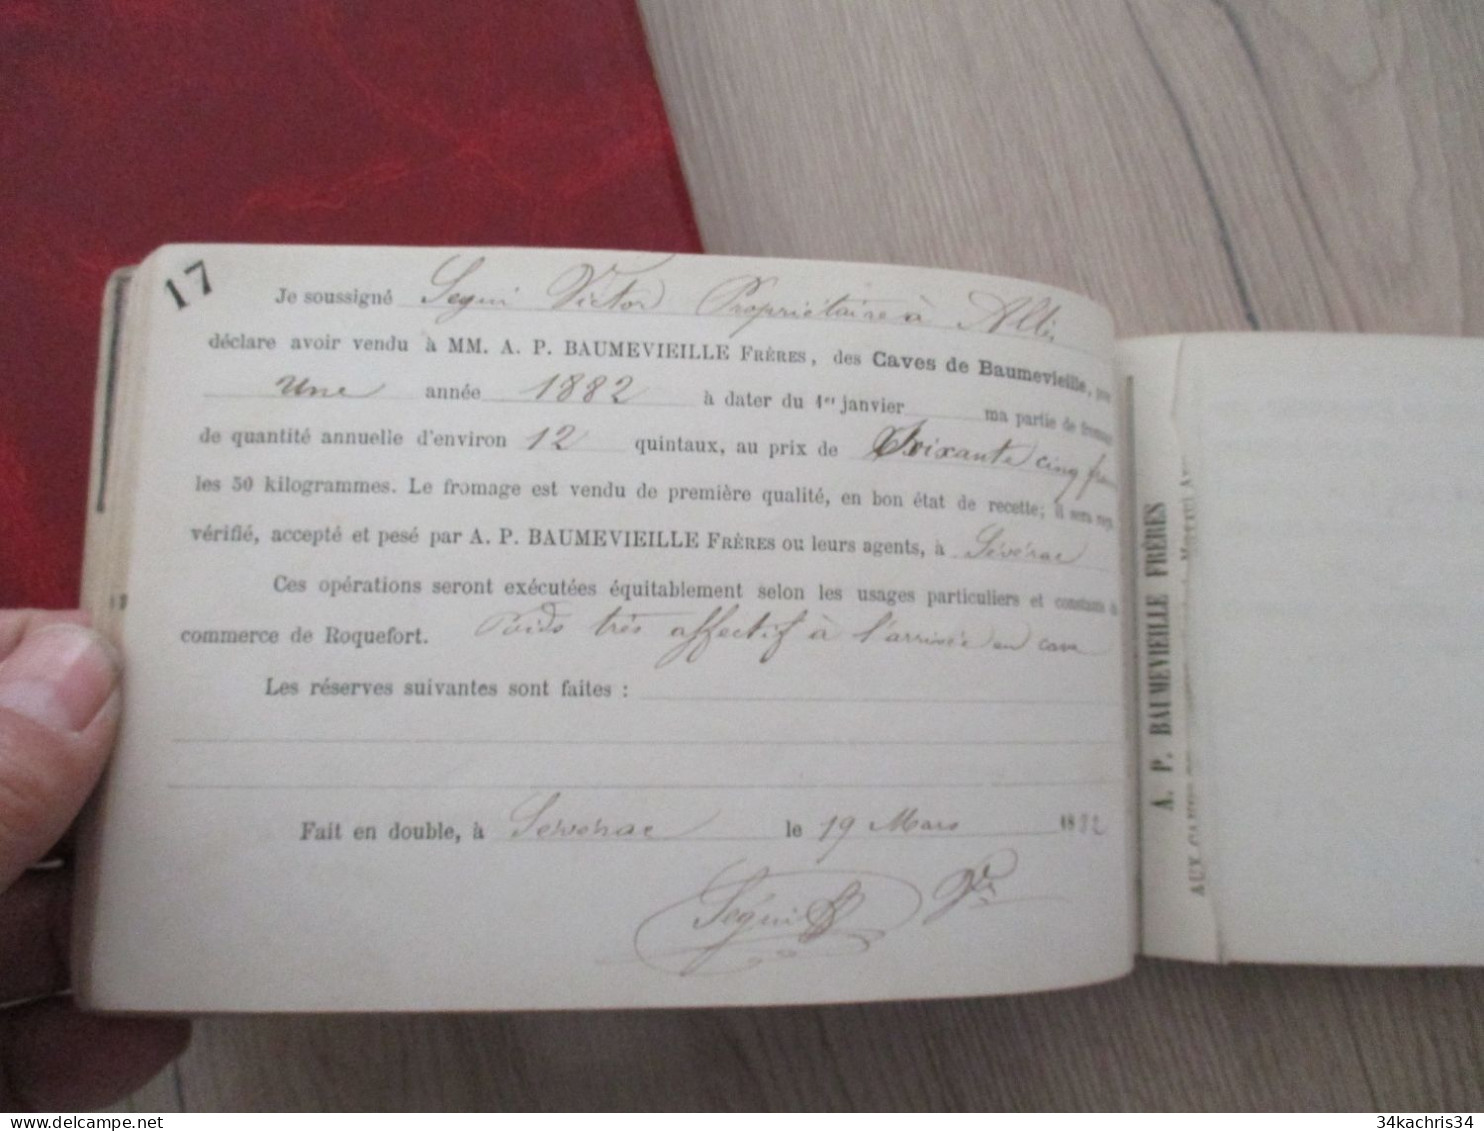 17
Je soussigné Segui Victor Propriétaire à Altès
déclare avoir vendu à MM. A. P. BAUMEVIEILLE FRÈRES, des Caves de Baumevieille, pour
Une année 1882 à dater du 1er janvier ma partie de fromage
de quantité annuelle d'environ 12 quintaux, au prix de Soixante cinq francs
les 50 kilogrammes. Le fromage est vendu de première qualité, en bon état de recette; il sera
vérifié, accepté et pesé par A. P. BAUMEVIEILLE FRÈRES ou leurs agents, à Sévérac
Ces opérations seront exécutées équitablement selon les usages particuliers et constants
commerce de Roquefort. Poids très affectif à l'arrivée en cave
Les réserves suivantes sont faites :
Fait en double, à Sévérac le 19 Mars 1882
Ségui
A. P. BAUMEVIEILLE FRÈRES
34kachris34
delcampe.net